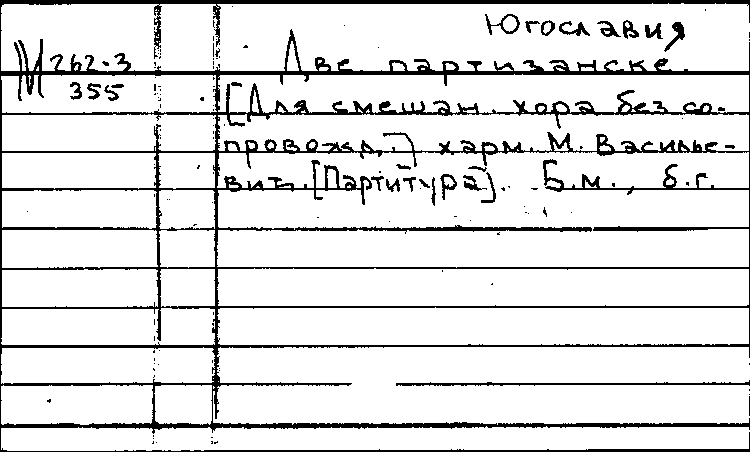 Югославия
М 262-3
355
Две партизанске.
[Для смешан. хора без со-
провожд.] харм. М. Василье-
вић. [Партитура]. Б.м., б.г.